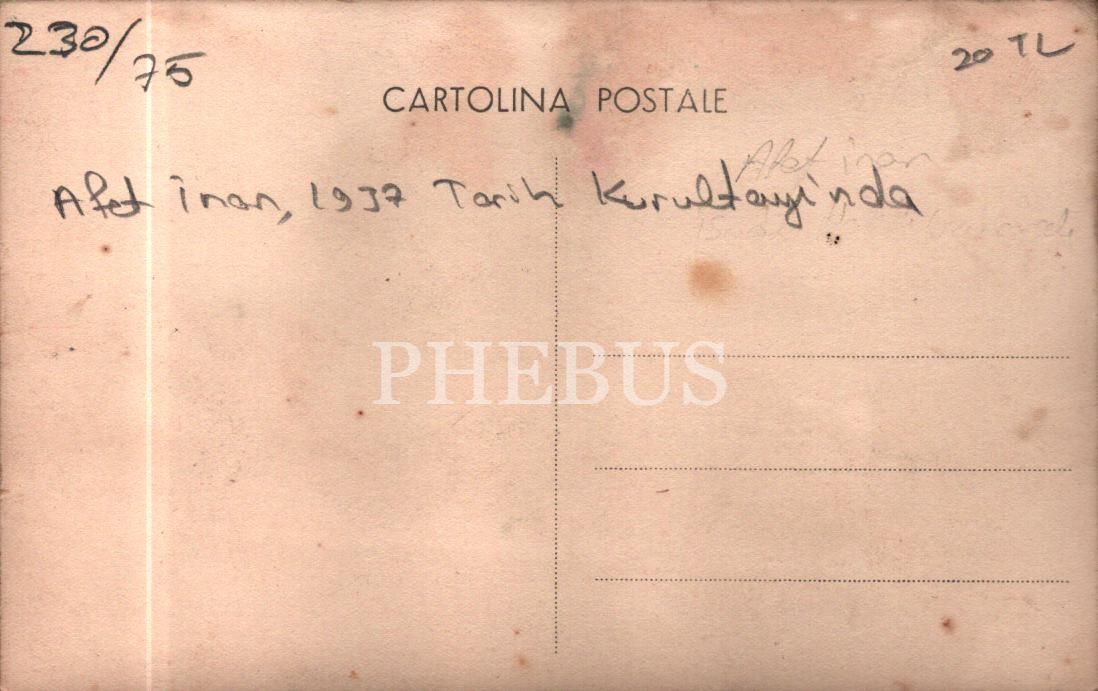 230/75
20 TL
CARTOLINA POSTALE
Afet inan
Afet İnan, 1937 Tarih Kurultayi'nda
PHEBUS